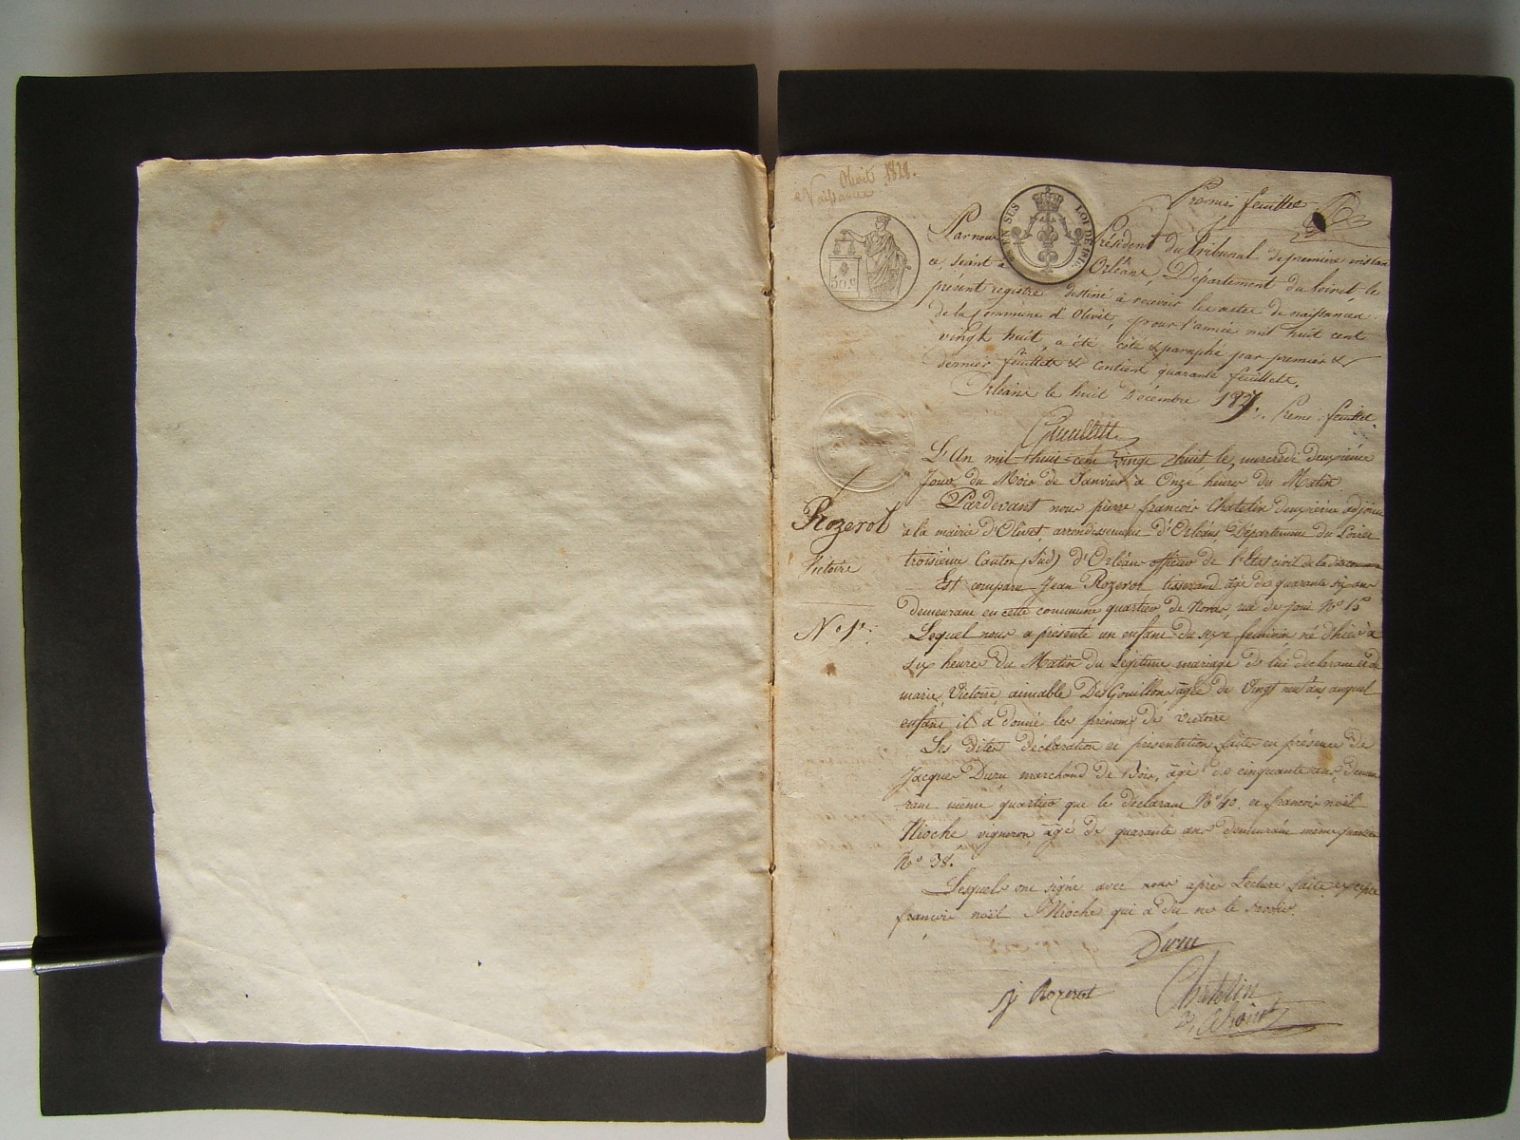 Olivet 1828.
Naissance
Premier feuillet
EN SUS
LOI DE
50 c
Par nous Président du Tribunal de première instan
ce, séant à Orléans, Département du Loiret, le
présent registre destiné à recevoir les actes de naissances
de la Commune d'Olivet, pour l'année mil huit cent
vingt huit, a été coté & paraphé par premier &
dernier feuillet & contient quarante feuillets.
Orléans le huit Décembre 1827.
feuillet
L'An mil huit cent vingt huit le mercredi deuxième
Jour du Mois de Janvier à Onze heures du Matin
Pardevant nous pierre françois Chatelin deuxième adjoint
à la mairie d'Olivet, arrondissement d'Orléans, Département du Loiret
troisième Canton (Sud) d'Orléans officier de l'état civil de la
Rozerot
Victoire
N° 1er
Est comparu Jean Rozerot tisserand âgé de quarante six ans
demeurant en cette commune quartier de N° 15
Lequel nous a présenté un enfant du sexe feminin né d'hier à
six heures du Matin du Légitime mariage de lui declarant et de
marie Victoire aimable DesGouillons âgée de Vingt neuf ans auquel
enfant il a donné les prénoms de Victoire
Les dites déclaration et présentation faites en présence de
Jacques Duru marchand de Bois, âgé de cinquante ans, demeu
rant même quartier que le déclarant N° 40, et françois noël
Mioche vigneron, âgé de quarante ans demeurant même quartier
N° 38.
Lesquels ont signé avec nous après Lecture faite, excepté
françois noël Mioche qui a dit ne le savoir.
Duru
J Rozerot
Chatelin
adjoint